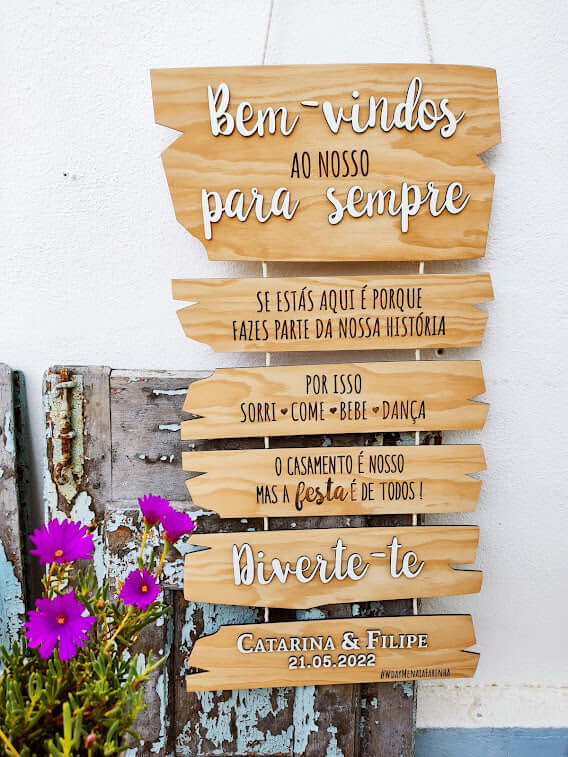 Bem-vindos
AO NOSSO
para sempre
SE ESTÁS AQUI É PORQUE
FAZES PARTE DA NOSSA HISTÓRIA
POR ISSO
SORRI ♥ COME ♥ BEBE ♥ DANÇA
O CASAMENTO É NOSSO
MAS A festa É DE TODOS !
Diverte-te
CATARINA & FILIPE
21.05.2022
#WDAYMENAIAFARINHA